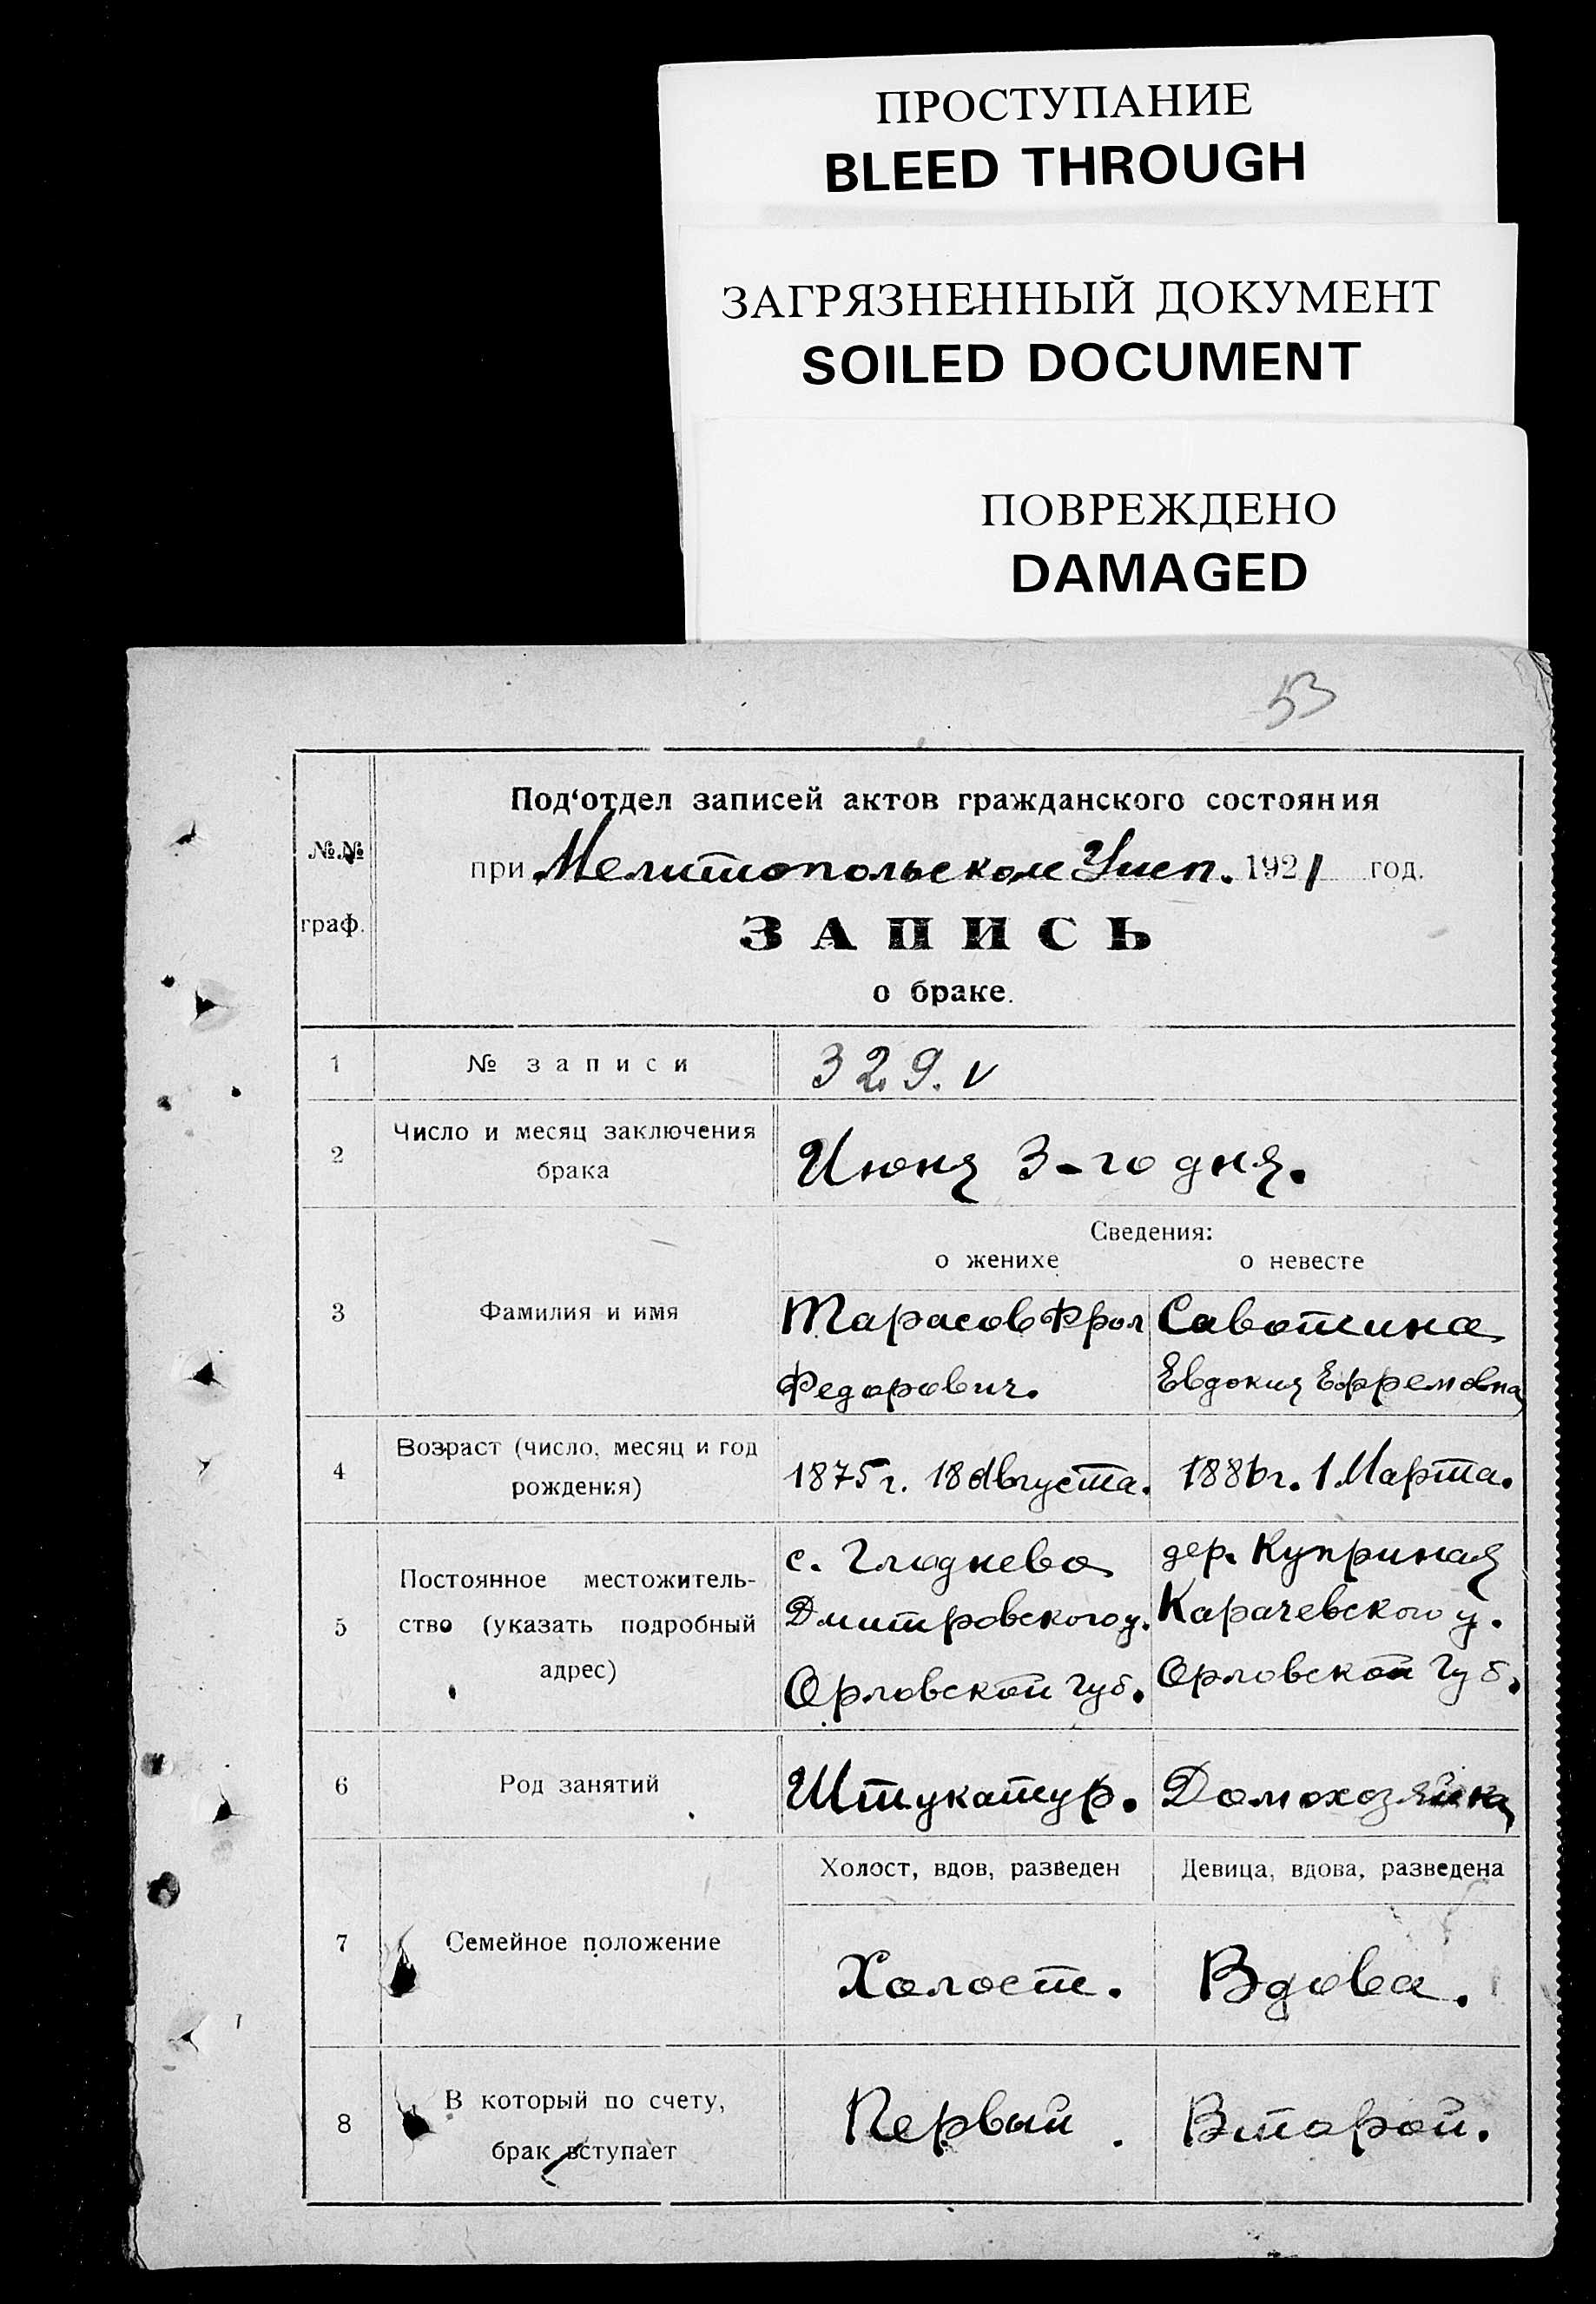 ПРОСТУПАНИЕ
BLEED THROUGH
ЗАГРЯЗНЕННЫЙ ДОКУМЕНТ
SOILED DOCUMENT
ПОВРЕЖДЕНО
DAMAGED
53
№№ граф.
Под‘отдел записей актов гражданского состояния
при Мелитопольском Уисп. 1921 год.
ЗАПИСЬ
о браке.
1 № записи 329. v
2 Число и месяц заключения брака Июня 3-го дня.
Сведения:
о женихе о невесте
3 Фамилия и имя Тарасов Фрол Савотина
Федорович. Евдокия Ефремовна
4 Возраст (число, месяц и год рождения) 1875 г. 18 Августа. 1886 г. 1 Марта.
5 Постоянное местожитель-
ство (указать подробный
адрес)
с. Глоднево
Дмитровского у.
Орловской губ.
дер. Куприная
Карачевского у.
Орловской губ.
6 Род занятий Штукатур. Домохозяйка
Холост, вдов, разведен Девица, вдова, разведена
7 Семейное положение Холост. Вдова.
8 В который по счету,
брак вступает Первый. Второй.